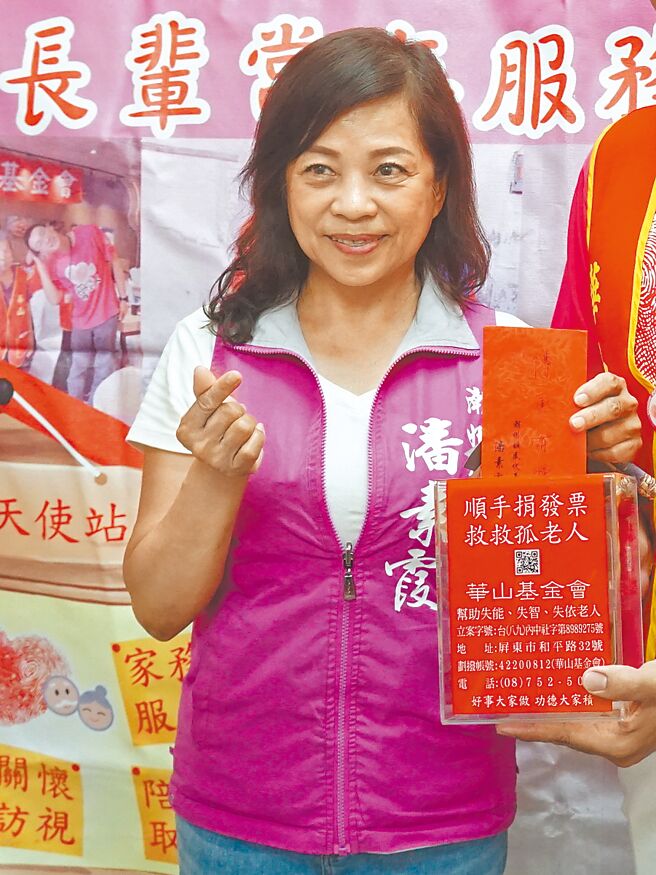 長輩當
服務
基金會
天使站
家務
服
關懷
訪視
陪
取
潘素霞
順手捐發票
救救孤老人
華山基金會
幫助失能、失智、失依老人
立案字號:台(八九)內中社字第8989275號
地 址:屏東市和平路32號
劃撥帳號:42200812(華山基金會)
電 話:(08)752-50
好事大家做 功德大家積